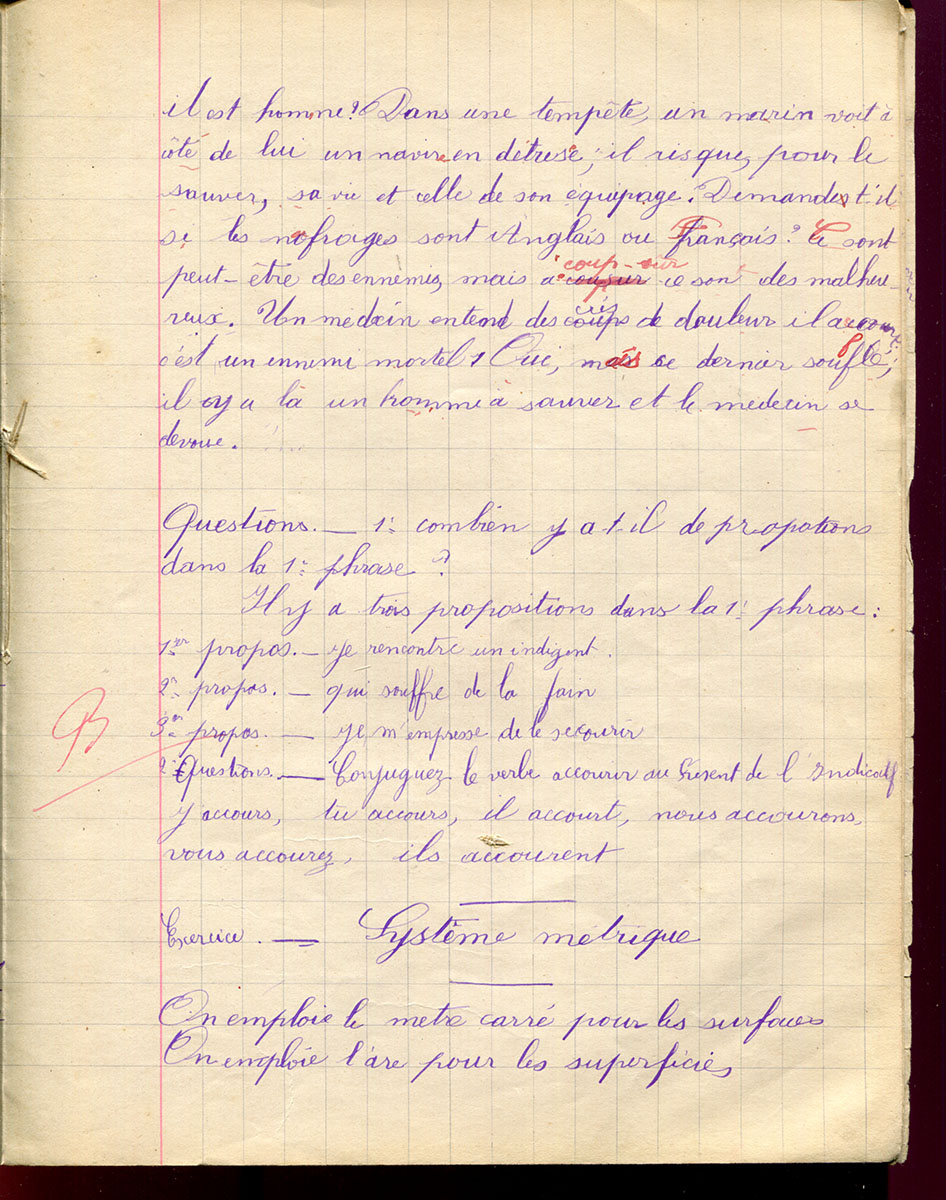 il est homme? Dans une tempête, un marin voit à
côté de lui un navire en détrese; il risque, pour le
sauver, sa vie et celle de son équipage. Demandes t'il
si les nofrages sont Anglais ou Français? Ce sont
coup-sur
peut-être des ennemis, mais a coupsur ce sont des malheu-
cris
reux. Un médecin entend des coups de douleur il accourt
c'est un ennemi mortel! Oui, mais ce dernier souffle;
il y a là un homme à sauver et le medecin se
devoue.
Questions. — 1: combien y a t-il de propations
dans la 1: phrase?
Il y a trois propositions dans la 1: phrase:
1er propos. — Je rencontre un indigent.
2: propos. — qui souffre de la fain
3: propos. — Je m'empresse de le secourir
2: Questions. — Conjuguez le verbe accourir au Présent de l'Indicatif
J'accours, tu accours, il accourt, nous accourons,
vous accourez, ils accourent
Exercice. — Système métrique
On emploie le metre carré pour les surfaces
On emploie l'are pour les superficies